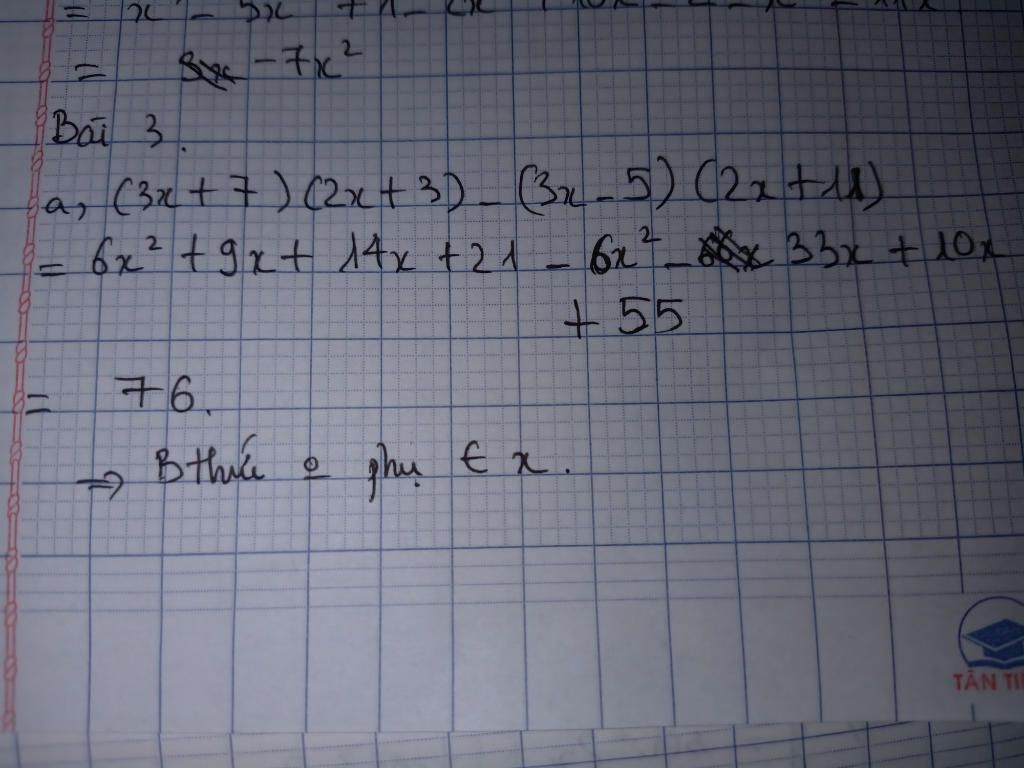 = - 7x²
Bài 3.
a, (3x + 7)(2x + 3) - (3x - 5)(2x + 11)
= 6x² + 9x + 14x + 21 - 6x² - 33x + 10x
+ 55
= 76.
⇒ B thức phụ ∈ x.
TÂN TI